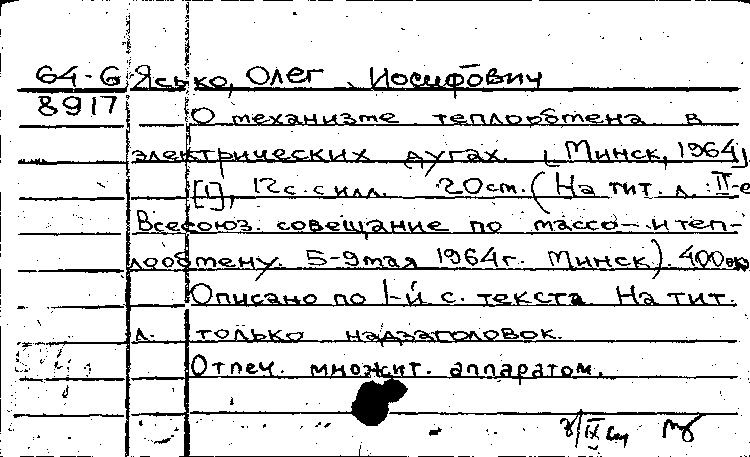 64-6 Ясько, Олег Иосифович
8917
О механизме теплообмена в
электрических дугах. [Минск, 1964]
[1], 12 с. с илл. 20 см. (На тит. л.: II-е
Всесоюз. совещание по массо- и теп-
лообмену. 5-9 мая 1964 г. Минск). 400 экз
Описано по 1-й с. текста. На тит.
л. только надзаголовок.
Отпеч. множит. аппаратом.